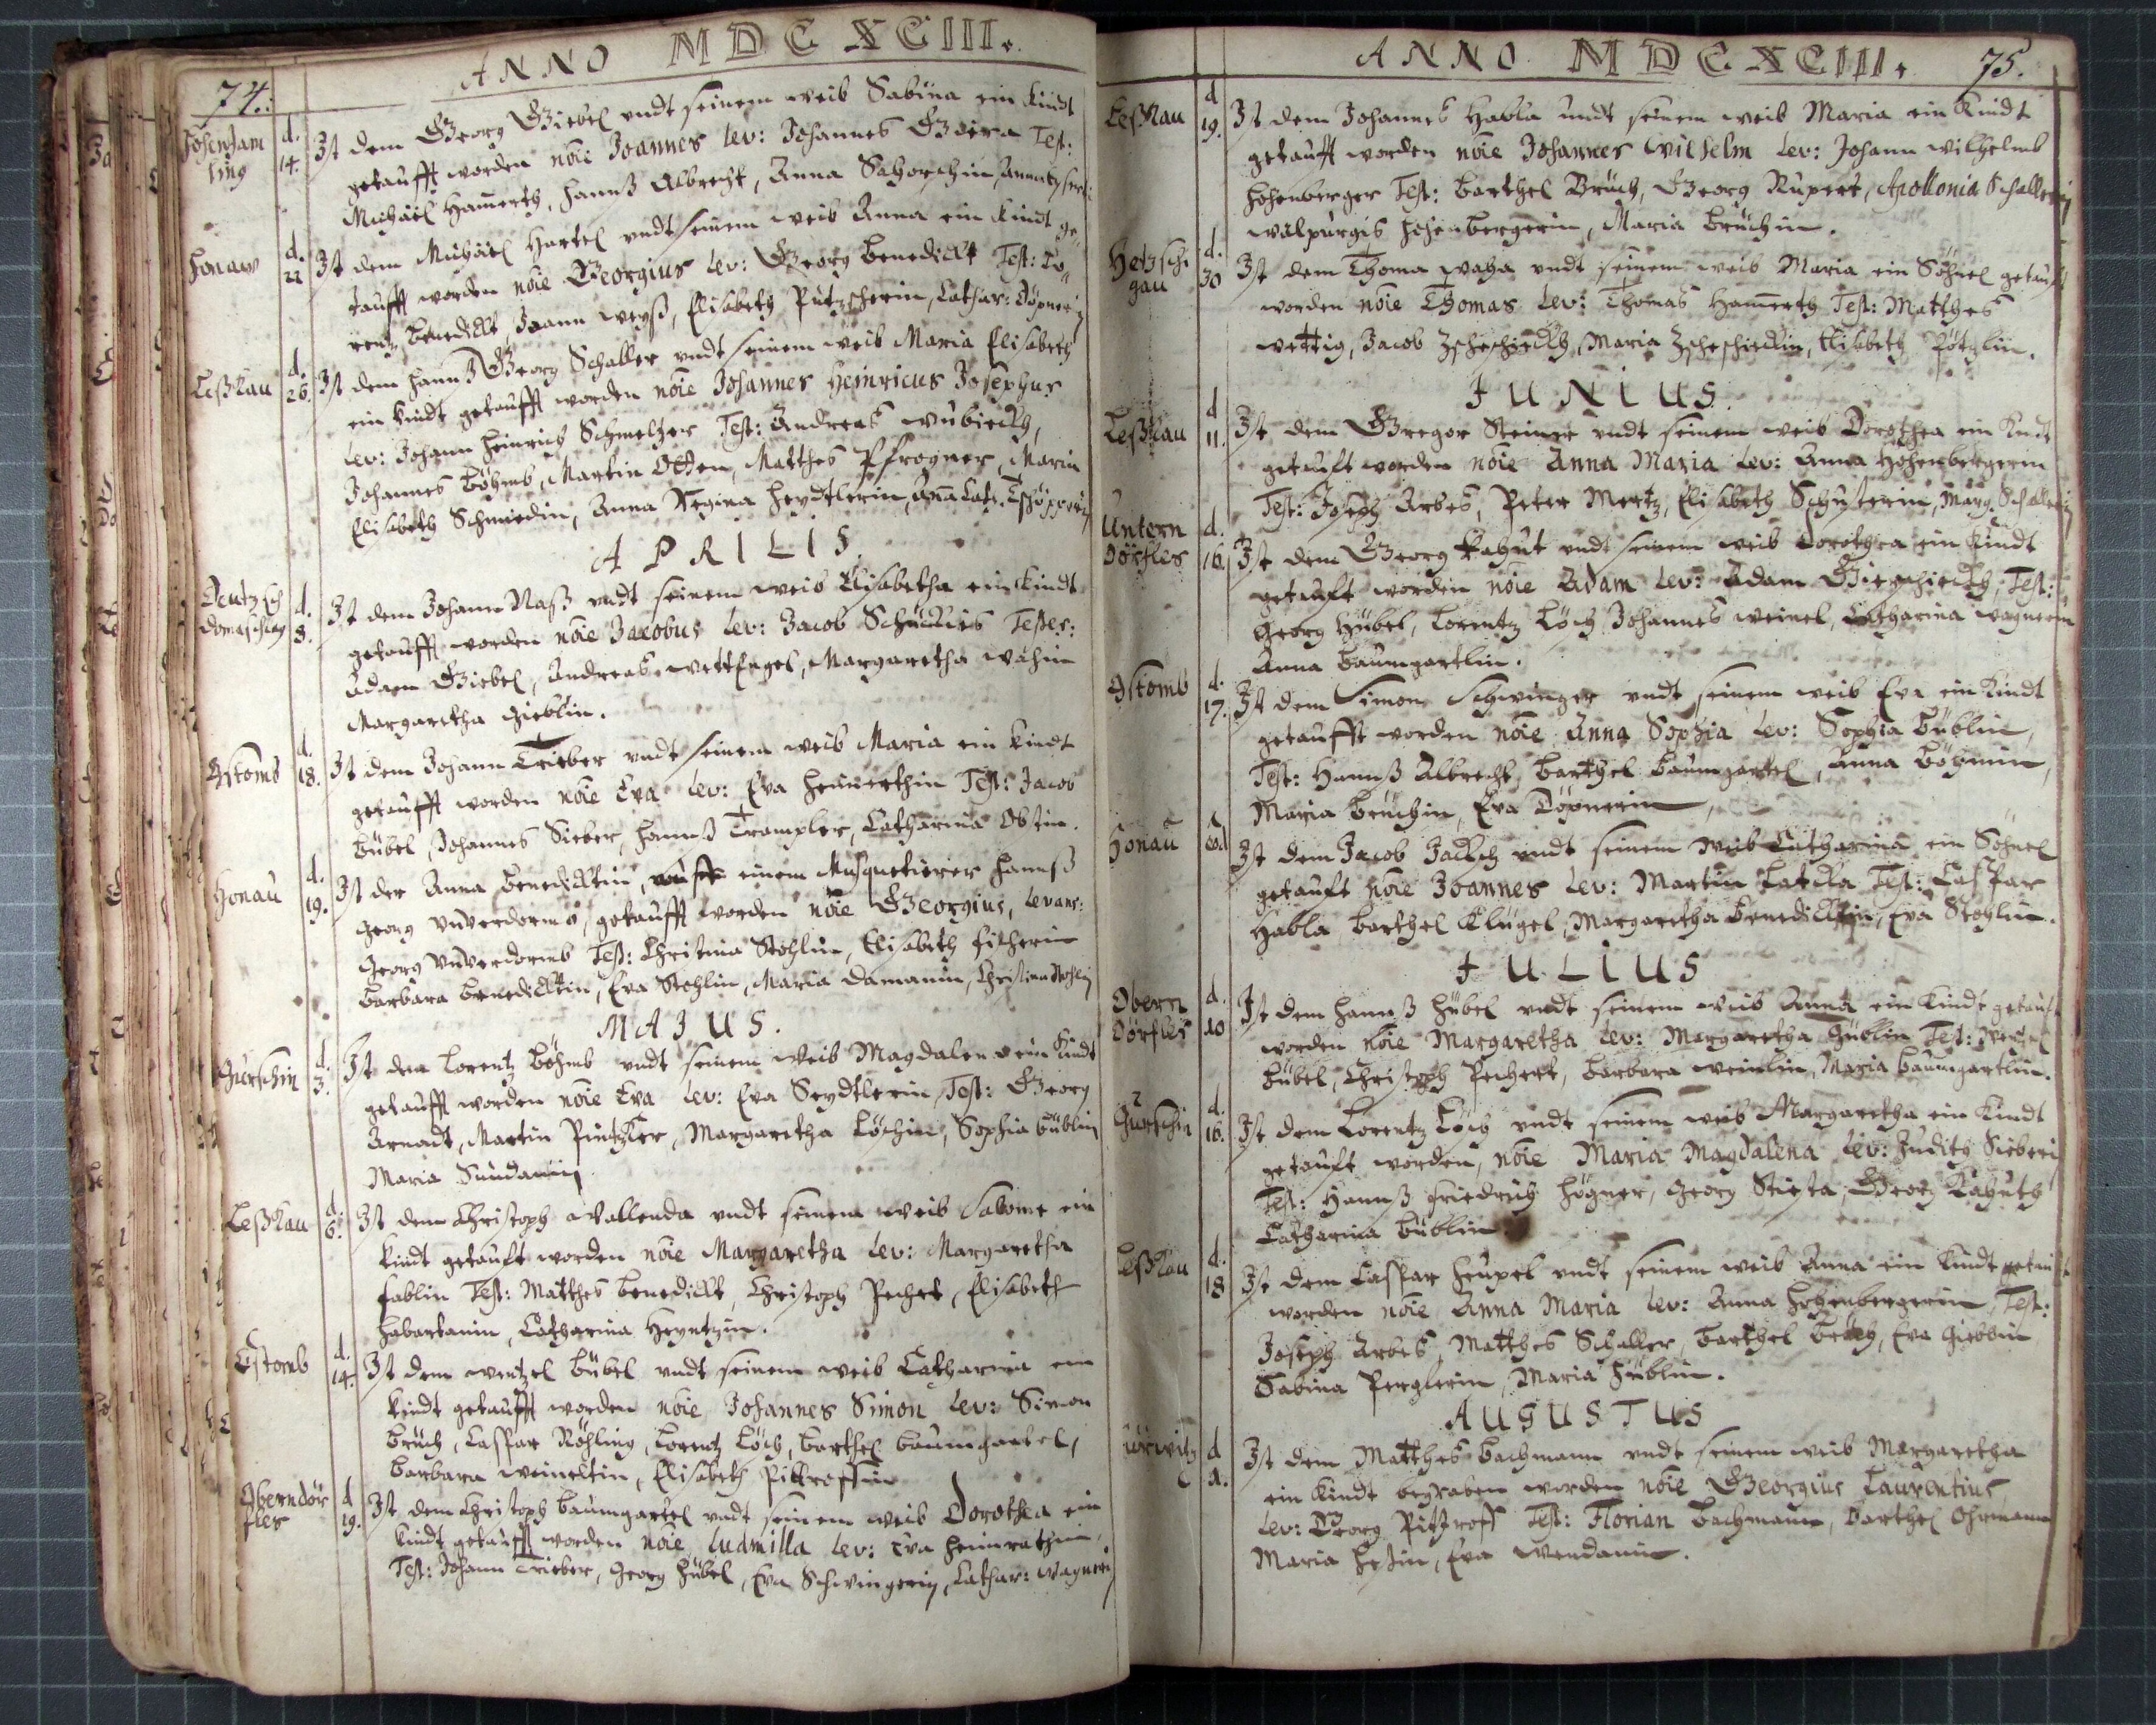 74.
ANNO MDCXCIII.
d.
14.
Ist dem Georg Giebel undt seinem weib Sabina ein kindt
getaufft worden nōie Joannes Lev: Johannes Test:
Michäel Ham̄erth, Hannß Albrecht, Anna
Honaw
d.
22
Ist dem Michäel Hertel undt seinem weib Anna ein kindt ge-
taufft worden nōie Georgius Lev: Georg Benedickt Test: Lo-
rentz Benedickt, Joann Weyß, Elisabeth Cathar:
Leßkau
d.
26.
Ist dem Hannß Georg Schaller undt seinem weib Maria Elisabeth
ein kindt getaufft worden nōie Johannes Heinricus Josephus
Lev: Johann Heinrich Schmeltzer Test: Andreas
Johannes Böhmb, Martin Otten, Matthes Pfrogner, Maria
Elisabeth Schmiedin, Anna Regina Heydtlerin,
APRILIS.
Deutzsch
Domaschlag
d.
8.
Ist dem Johann Naß undt seinem weib Elisabetha ein kindt
getaufft worden nōie Jacobus Lev: Jacob Testes:
Adam Giebel, Andreas Wettengel, Margaretha
Margaretha Gieblin.
Gstomb
d.
18.
Ist dem Johann Trieber undt seinem weib Maria ein kindt
getaufft worden nōie Eva Lev: Eva Test: Jacob
Bübel, Johannes Sieber, Hannß Trampler, Catharina
Honau
d.
19.
Ist der Anna Benedicktin, einem Musquetierer Hannß
Georg getaufft worden nōie Georgius, Levans:
Georg Unverdorms Test: Christina Stöhlin, Elisabeth
Barbara Benedicktin, Eva Stöhlin, Maria Christina
MAJUS.
Gürschin
d.
3.
Ist dem Lorentz Böhmb undt seinem weib Magdalena ein kindt
getaufft worden nōie Eva Lev: Eva Seydtlerin, Test: Georg
Martin Margaretha Löchin, Sophia Büblin
Maria
Leßkau
d.
6.
Ist dem Christoph Wallenda undt seinem weib Salome ein
kindt getauft worden nōie Margaretha Lev: Margaretha
Test: Matthes Benedickt, Christoph Elisabeth
Catharina
Gstomb
d.
14.
Ist dem Wentzel Bübel undt seinem weib Catharina ein
kindt getaufft worden nōie Johannes Simon Lev: Simon
Brüch, Caspar Röhling, Lorentz Löch, Barthel Baumgartel,
Barbara Weineltin, Elisabeth
Oberndör
fles
d
19.
Ist dem Christoph Baumgartel undt seinem weib Dorothea ein
kindt getaufft worden nōie Ludmilla Lev: Eva
Test: Johann Trieber, Georg Hübel, Eva Schwingerin, Cathar: Wagnerin
ANNO MDCXCIII.
75.
Leßkau
d
19.
Ist dem Johannes Habla undt seinem weib Maria ein Kindt
getaufft worden nōie Johannes Wilhelm Lev: Johann Wilhelmb
Hohenberger Test: Barthel Brüch, Georg Rupert, Apollonia Schallerin
Walpurgis Hohenbergerin, Maria Brüchin.
Hetzsch-
gau
d.
30
Ist dem Thoma Waha undt seinem weib Maria ein Söhnel getauft
worden nōie Thomas Lev: Thomas Ham̄erth Test: Matthes
Wettig, Jacob Maria Elisabeth
JUNIUS.
Leßkau
d
11.
Ist dem Gregor Steiner undt seinem weib Dorothea ein Kindt
getauft worden nōie Anna Maria Lev: Anna Hohenbergerin
Test: Joseph Arbes, Peter Mertz, Elisabeth Schusterin, Marg. Schallerin
Untern
Dörfles
d.
16.
Ist dem Georg Kahut undt seinem weib Dorothea ein Kindt
getauft worden nōie Adam Lev: Adam Test:
Georg Hübel, Lorentz Löch Johannes Weinel, Catharina Wagnerin
Anna Baumgartlin.
Gstomb
d.
17.
Ist dem Simon Schwinger undt seinem weib Eva ein Kindt
getaufft worden nōie Anna Sophia Lev: Sophia Büblin,
Test: Hannß Albrecht, Barthel Baumgartel, Anna Böhmin,
Maria Brüchin, Eva Töpnerin
Honau
eod
Ist dem Jacob undt seinem weib Catharina ein Söhnel
getauft nōie Joannes Lev: Martin Test: Caspar
Habla Barthel Klügel, Margaretha Benedicktin, Eva Stöhlin.
JULIUS
Obern
Dörfles
d.
10
Ist dem Hannß Hübel undt seinem weib Anna ein Kindt getauft
worden nōie Margaretha Lev: Margaretha Test: Wentzel
Bübel, Christoph Barbara Weinlin, Maria Baumgartlin.
Gürschin
d.
16.
Ist dem Lorentz Löch undt seinem weib Margaretha ein Kindt
getauft worden, nōie Maria Magdalena Lev: Judith Sieberin
Test: Hannß Friedrich Högner, Georg Georg Kahuth
Catharina Büblin.
Leßkau
d.
18
Ist dem Caspar Heupel undt seinem weib Anna ein Kindt getauft
worden nōie Anna Maria Lev: Anna Hohenbergerin Test:
Joseph Arbes, Matthes Schaller, Barthel Brüch, Eva Gieblin
Sabina Perglerin, Maria Hüblin.
AUGUSTUS
d
Ist dem Matthes Bachmann undt seinem weib Margaretha
ein Kindt begraben worden nōie Georgius Laurentius
Lev: Georg Pistroff Test: Florian Bachmann, Barthel Ohrmann
Maria Eva